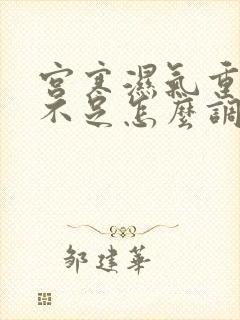 宮寒濕氣重
不足怎麼調
鄒建華